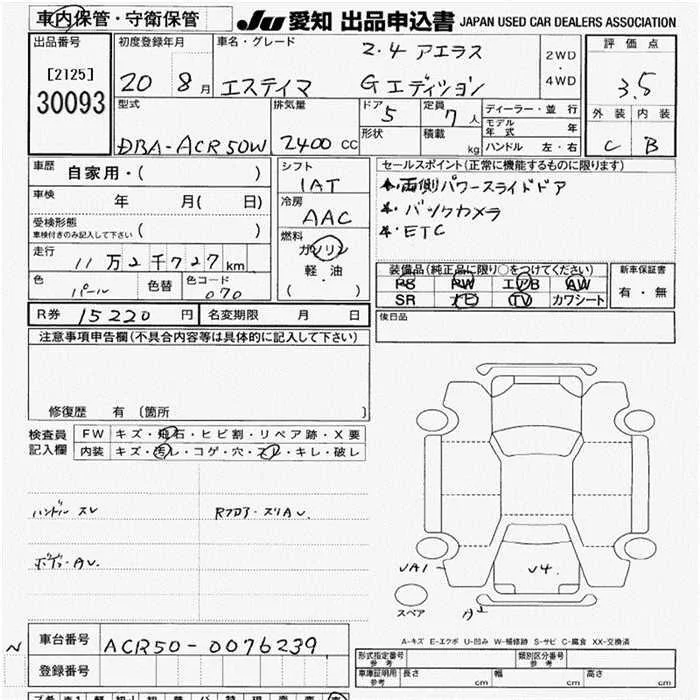 車内保管・守衛保管
JU 愛知 出品申込書 JAPAN USED CAR DEALERS ASSOCIATION
出品番号 初度登録年月 車名・グレード 2.4 アエラス 2WD・4WD 評価点
[2125]
30093
20 8月 エスティマ Gエディション 3.5
型式 排気量 ドア 5 定員 7人 ディーラー・並行 外装 内装
モデル年式 年
DBA-ACR50W 2400 CC 形状 積載 kg ハンドル 左・右 C B
車歴 自家用・( ) シフト セールスポイント(正常に機能するものに限ります)
1AT
両側パワースライドドア
車検 年 月( 日) 冷房 バックカメラ
AAC
ETC
受検形態
車検付きのみ記入して下さい ( )
燃料
走行 11万2千727km ガソリン
軽・油
( )
装備品(純正品に限り○をつけてください) 新車保証書
色 パール 色替 色コード 070
PS PW エアB AW
SR ナビ TV カワシート 有・無
R券 15220円 名変期限 月 日 後日品
注意事項申告欄(不具合内容等は具体的に記入して下さい)
修復歴 有 (箇所 )
検査員 FW キズ・飛石・ヒビ割・リペア跡・X要
記入欄 内装 キズ・汚レ・コゲ・穴・スレ・キレ・破レ
ハンドル スレ Rフロア・スリAU.
ボディ・AU.
UA1 U4
スペア
A-キズ E-エクボ U-凹み W-補修跡 S-サビ C-腐食 XX-交換済
N 車台番号 ACR50-0076239
登録番号
形式指定番号 参考 類別区分番号 参考
車庫証明用 参考 長さ cm 幅 cm 高さ cm